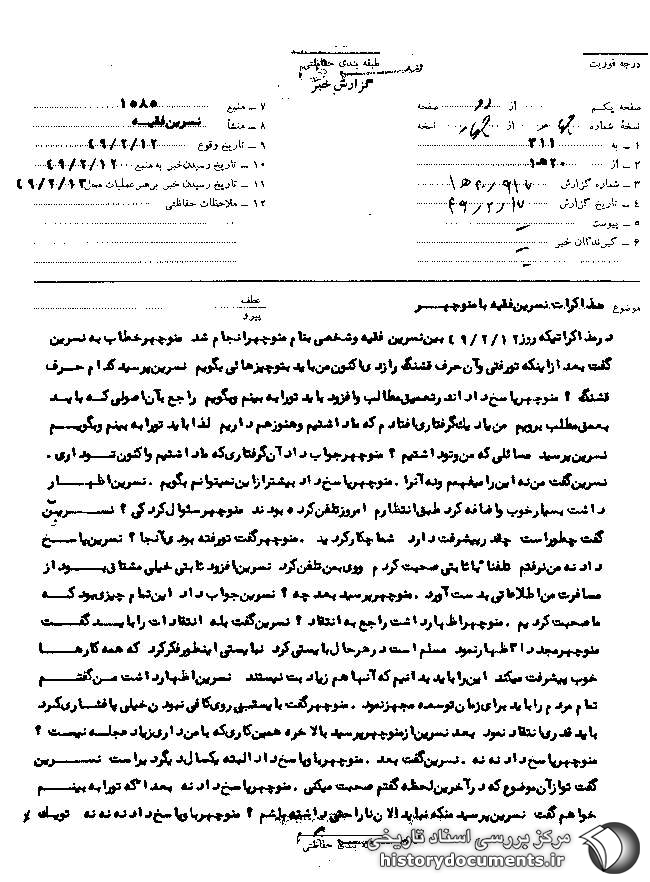 طبقه بندی حفاظتی
درجه فوریت
گزارش خبر
صفحه یکم از صفحه
۷ ـ منبع ۱۵۸۵
نسخه شماره از نسخه
۸ ـ منشأ نسرین فقیه
۱ ـ به ۳۱۱
۹ ـ تاریخ وقوع ۴۹/۲/۱۲
۲ ـ از ۲۰ ه‍ ۱
۱۰ ـ تاریخ رسیدن خبر به منبع ۴۹/۲/۱۲
۳ ـ شماره گزارش
۱۱ ـ تاریخ رسیدن خبر برهبر عملیات محل ۴۹/۲/۱۳
۴ ـ تاریخ گزارش ۴۹/۲/۱۷
۱۲ ـ ملاحظات حفاظتی
۵ ـ پیوست
۶ ـ گیرندگان خبر
عطف
پیرو
موضوع مذاکرات نسرین فقیه با منوچهر
در مذاکراتیکه روز ۴۹/۲/۱۲ بین نسرین فقیه و شخصی بنام منوچهر انجام شد منوچهر خطاب به نسرین
گفت بعد از اینکه تو رفتی و آن حرف قشنگ را زدی اکنون من باید بتو چیزهائی بگویم نسرین پرسید کدام حرف
قشنگ ؟ منوچهر پاسخ داد اندر تعمیق مطالب و افزود باید تو را به بینم و بگویم راجع بآن اصولی که باید
بعمق مطلب برویم من یاد یک گرفتاری افتادم که ما داشتیم و هنوز هم داریم لذا باید تو را به بینم و بگویم
نسرین پرسید مسائلی که من و تو داشتیم ؟ منوچهر جواب داد آن گرفتاری که ما داشتیم و اکنون تو داری .
نسرین گفت من نه این را میفهم و نه آنرا . منوچهر پاسخ داد بیشتر از این نمیتوانم بگویم . نسرین اظهار
داشت بسیار خوب و اضافه کرد طبق انتظارم امروز تلفن کرده بودند منوچهر سئوال کرد کی ؟ نسرین
گفت چطور است چقدر پیشرفت دارد شما چکار کردید . منوچهر گفت تو رفته بودی آنجا ؟ نسرین پاسخ
داد نه من نرفتم تلفنا" با ثابتی صحبت کردم و وی بمن تلفن کرد نسرین افزود ثابتی خیلی مشتاق بود از
مسافرت من اطلاعاتی بدست آورد . منوچهر پرسید بعد چه ؟ نسرین جواب داد این تمام چیزی بود که
ما صحبت کردیم . منوچهر اظهار داشت راجع به انتقاد ؟ نسرین گفت بله انتقادات را باید گفت
منوچهر مجددا" اظهار نمود مسلم است در هر حال بایستی کرد نبایستی اینطور فکر کرد که همه کارها
خوب پیشرفت میکند این را باید بدانیم که آنها هم زیاد بت نیستند نسرین اظهار داشت من گفتم
تمام مردم را باید برای زمان توسعه مجهز نمود . منوچهر گفت بایستی روی کافی نبودن خیلی پافشاری کرد
باید قدری انتقاد نمود بعد نسرین از منوچهر پرسید بالاخره همین کاری که با من داری زیاد عجله نیست ؟
منوچهر پاسخ داد نه نه . نسرین گفت بعد . منوچهر باو پاسخ داد البته یکسال دیگر دیر است نسرین
گفت تو از آن موضوع که در آخرین لحظه گفتم صحبت میکنی . منوچهر پاسخ داد نه بعدا" که تو را به بینم
خواهم گفت نسرین پرسید منکه نباید الان ناراحتی داشته باشم ؟ منوچهر باو پاسخ داد نه نه نه تو یک
طبقه بندی حفاظتی
مرکز بررسی اسناد تاریخی
historydocuments.ir